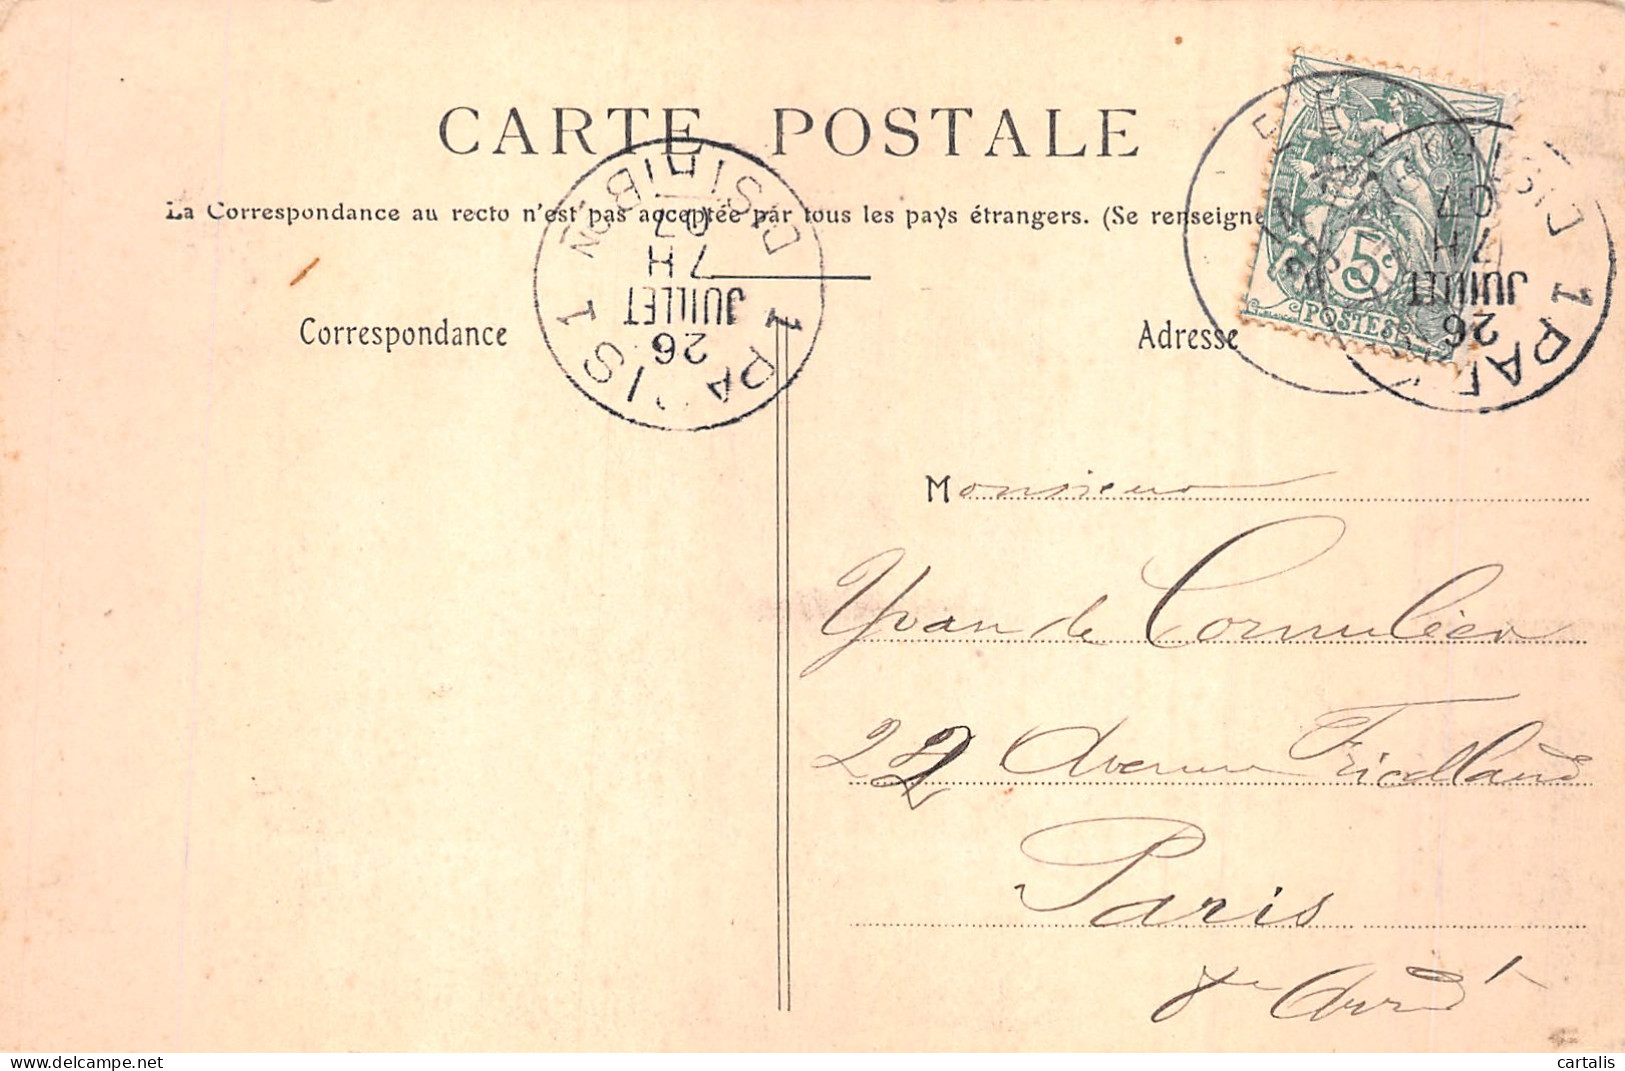 CARTE POSTALE
La Correspondance au recto n'est pas acceptée par tous les pays étrangers. (Se renseigne
Correspondance
Adresse
PARIS 1 DISTRIBON 1
7 H
26
JUILLET
07
5c
POSTES
PAR
1 DIST
7 H
26
JUILLET
07
Monsieur
Yvan de Cornulier
22 Avenue Friedland
Paris
8e Arrd'
cartalis
delcampe.net